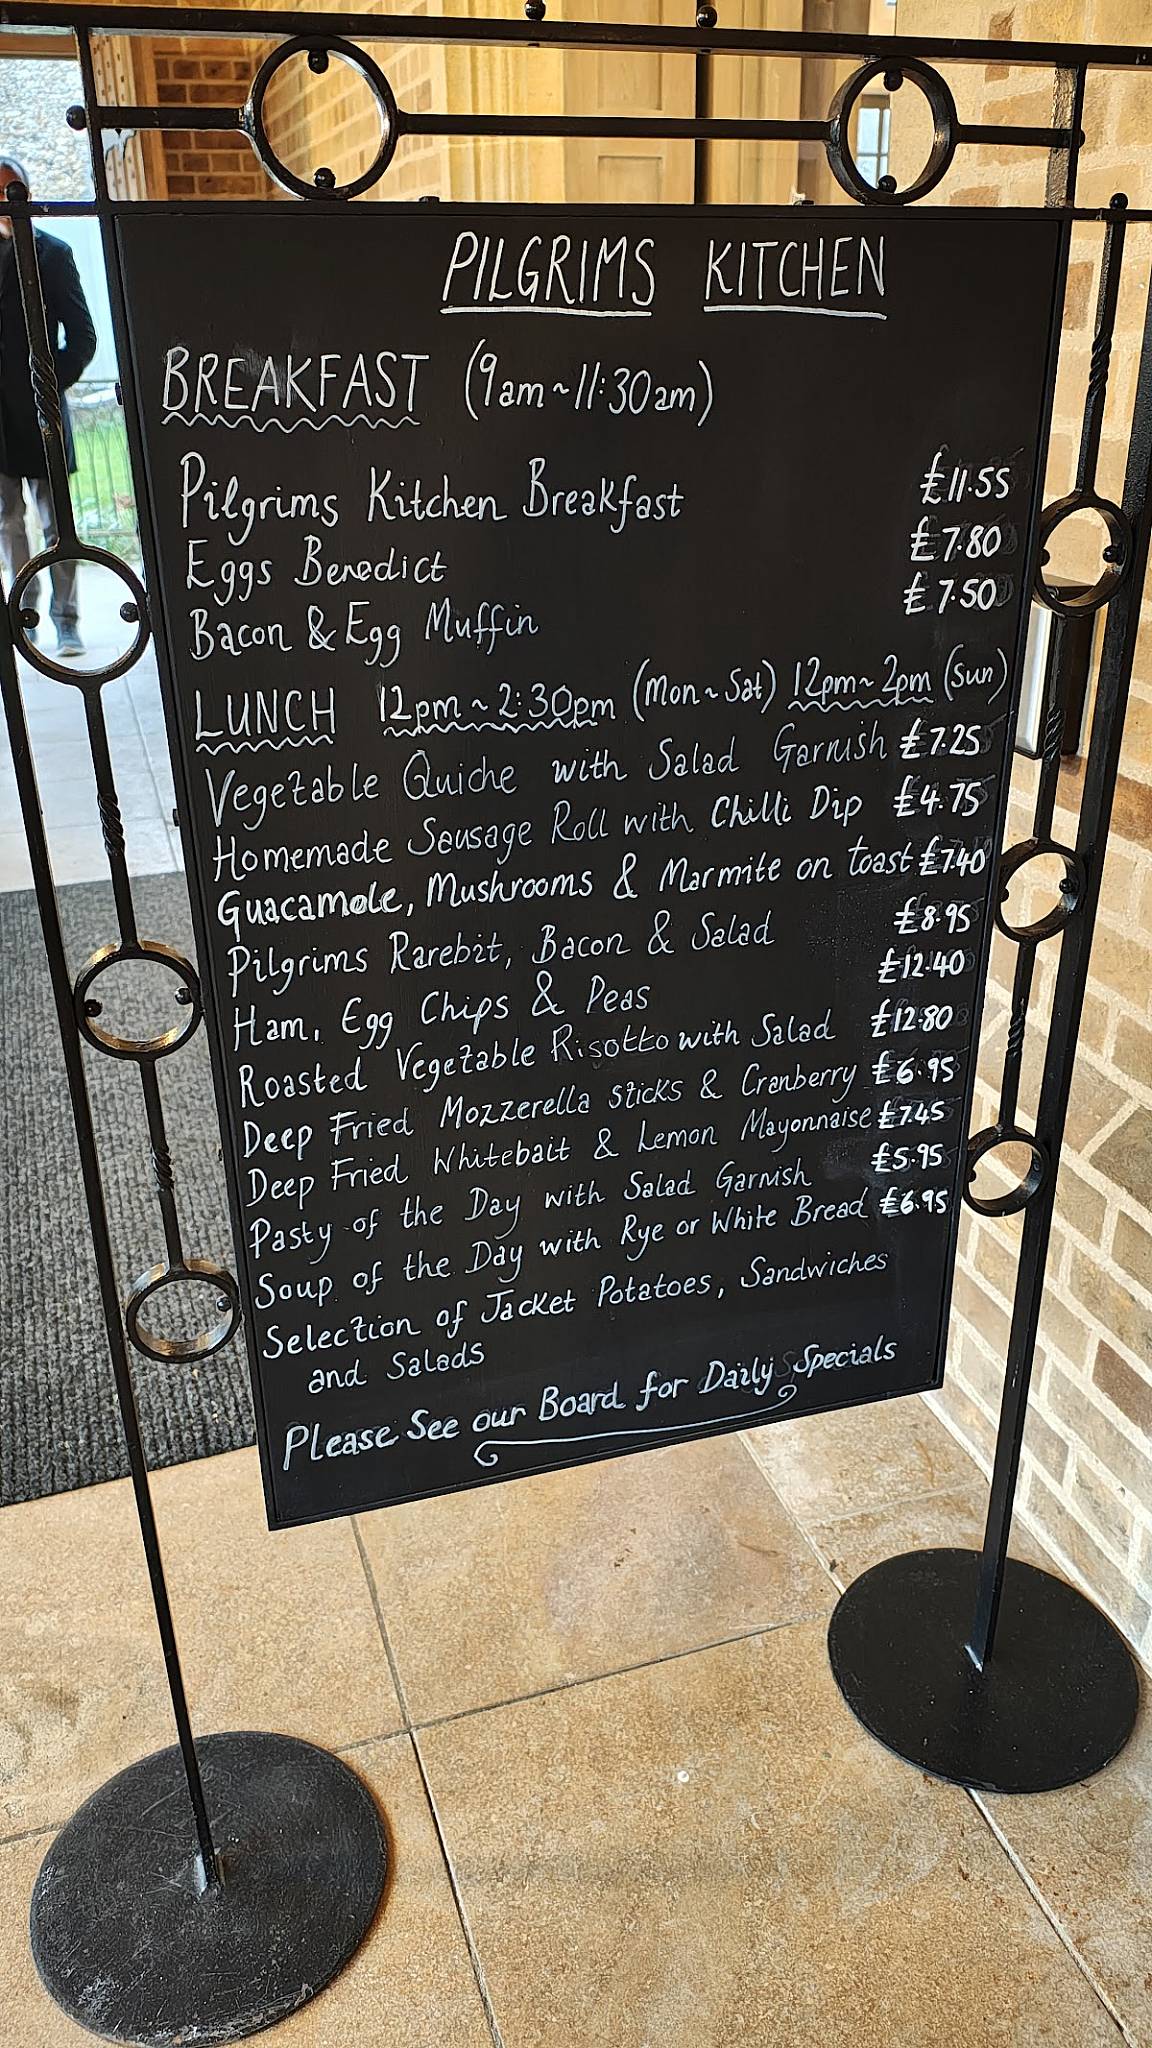 PILGRIMS KITCHEN
BREAKFAST (9am~11:30am)
Pilgrims Kitchen Breakfast £11.55
Eggs Benedict £7.80
Bacon & Egg Muffin £7.50
LUNCH 12pm~2:30pm (Mon~Sat) 12pm~2pm (Sun)
Vegetable Quiche with Salad Garnish £7.25
Homemade Sausage Roll with Chilli Dip £4.75
Guacamole, Mushrooms & Marmite on toast £7.40
Pilgrims Rarebit, Bacon & Salad £8.95
Ham, Egg Chips & Peas £12.40
Roasted Vegetable Risotto with Salad £12.80
Deep Fried Mozzerella Sticks & Cranberry £6.95
Deep Fried Whitebait & Lemon Mayonnaise £7.45
Pasty of the Day with Salad Garnish £5.95
Soup of the Day with Rye or White Bread £6.95
Selection of Jacket Potatoes, Sandwiches
and Salads
Please See our Board for Daily Specials